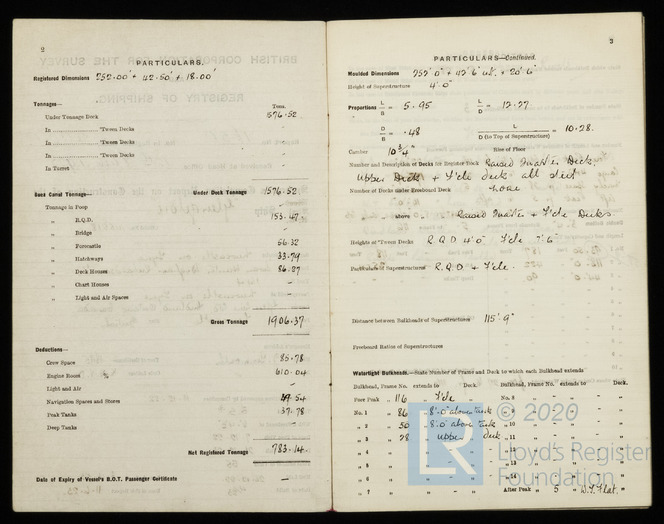 2
PARTICULARS.
Registered Dimensions 252.00' + 42.50' + 18.00'
Tonnages— Tons.
Under Tonnage Deck 1576.52
In ........ 'Tween Decks -
In ........ 'Tween Decks -
In ........ 'Tween Decks -
In Turret -
Suez Canal Tonnage— Under Deck Tonnage 1576.52
Tonnage in Poop -
„ R.Q.D. 153.47
„ Bridge -
„ Forecastle 56.32
„ Hatchways 33.79
„ Deck Houses 86.27
„ Chart Houses -
„ Light and Air Spaces -
Gross Tonnage 1906.37
Deductions—
Crew Space 85.78
Engine Room „ 610.04
Light and Air -
Navigation Spaces and Stores 54
Peak Tanks 37.78
Deep Tanks -
Net Registered Tonnage 783.14.
Date of Expiry of Vessel's B.O.T. Passenger Certificate —
3
PARTICULARS—Continued.
Moulded Dimensions 252'.0" + 42'.6" + 20'.6"
Height of Superstructure 4'.0"
Proportions L/B = 5.95 L/D = 12.27
D/B = .48 L/D (to Top of Superstructure) = 10.28.
Camber 10 3/4" Rise of Floor
Number and Description of Decks for Register Book Raised Quarter Deck,
Upper Deck + F'cle deck all steel
Number of Decks under Freeboard Deck none
„ above „ Raised Quarter + F'cle Decks
Heights of 'Tween Decks R.Q.D 4'.0" F'cle 7'.6"
Particulars of Superstructures R.Q.D + F'cle.
Distance between Bulkheads of Superstructures 115'.9"
Freeboard Ratios of Superstructures
Watertight Bulkheads.—State Number of Frame and Deck to which each Bulkhead extends
Bulkhead, Frame No. extends to Deck Bulkhead, Frame No. extends to Deck.
Fore Peak „ 116 „ F'cle „ No. 8 „ „
No. 1 „ 86 „ 8'.0" above tank „ 9
„ 2 „ 50 „ 8'.0" above tank „ 10
„ 3 „ 28 „ Upper Deck „ 11
„ 4 „ „
„ 5 „ „
„ 6 „ „ „ 14
„ 7 „ „ After Peak „ 5 „ W.T. Flat.
LR © 2020
Lloyd's Register
Foundation